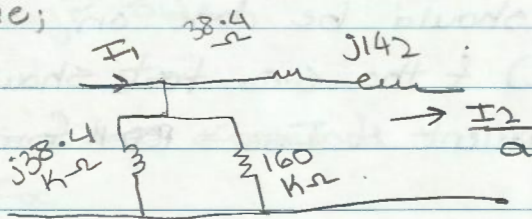 e;
I1
38.4
Ω
j142
I2
a
j38.4
KΩ
160
KΩ